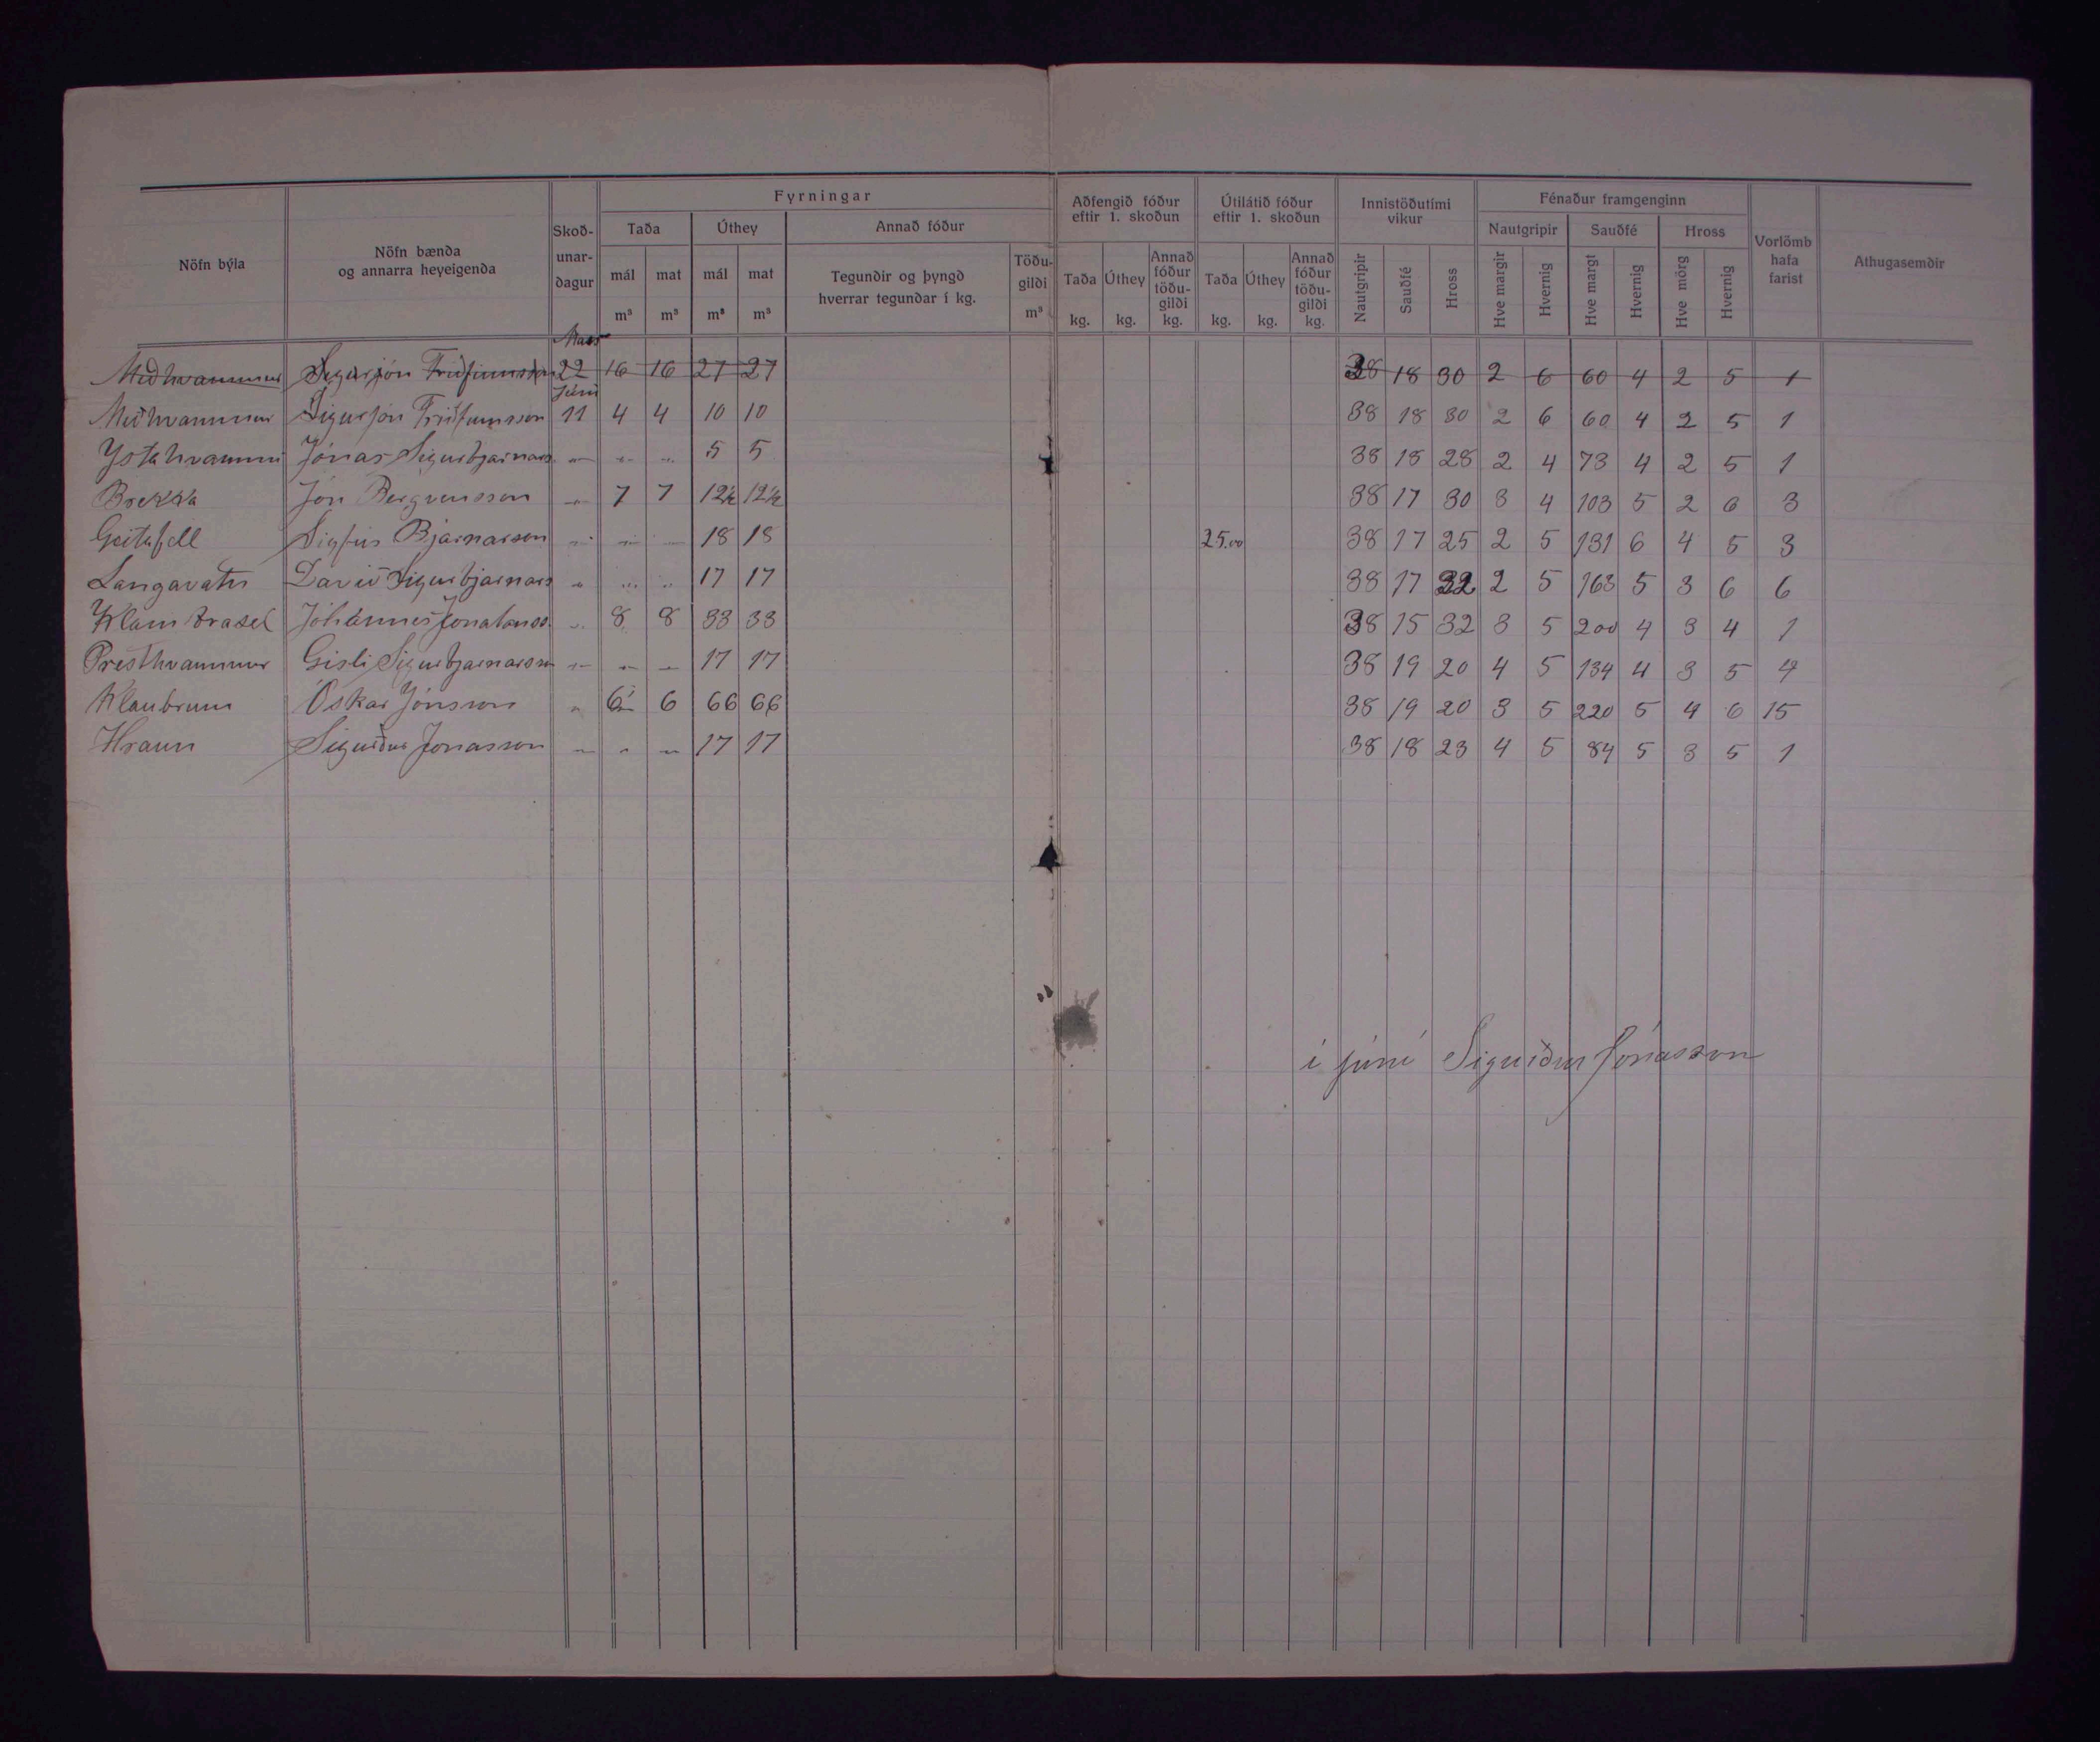 Fyrningar
Aðfengið fóður eftir 1. skoðun
Útilátið fóður eftir 1. skoðun
Innistöðutími vikur
Fénaður framgenginn
Nöfn býla
Nöfn bænda og annarra heyeigenda
Skoð-unar-dagur
Taða
Úthey
Annað fóður
Nautgripir
Sauðfé
Hross
Vorlömb hafa farist
Athugasemdir
mál m³ mat m³ mál m³ mat m³
Tegundir og þyngd hverrar tegundar í kg.
Töðu-gildi m³
Taða kg. Úthey kg. Annað fóður töðu-gildi kg.
Taða kg. Úthey kg. Annað fóður töðu-gildi kg.
Nautgripir Sauðfé Hross
Hve margir Hvernig Hve margt Hvernig Hve mörg Hvernig
Mars
Miðhvammur Sigurjón Friðfinnsson 22 16 16 27 27 38 18 30 2 6 60 4 2 5 1
Júní
Miðhvammur Sigurjón Friðfinnsson 11 4 4 10 10 38 18 30 2 6 60 4 2 5 1
Ystahvammi Jónas Sigurbjarnars. " " " 5 5 38 18 28 2 4 73 4 2 5 1
Brekka Jón Bergvinsson " 7 7 12½ 12½ 38 17 30 3 4 103 5 2 6 3
Geitafell Sigfús Bjarnarson " " " 18 18 25.00 38 17 25 2 5 131 6 4 5 3
Langavatn Davíð Sigurbjarnars " " " 17 17 38 17 32 2 5 163 5 3 6 6
Klambrasel Jóhannes Jónatanss. " 8 8 33 33 38 15 32 3 5 200 4 3 4 1
Presthvammur Gísli Sigurbjarnarson " " " 17 17 38 19 20 4 5 134 4 3 5 4
Klaubrun Óskar Jónsson " 6 6 66 66 38 19 20 3 5 220 5 4 6 15
Hraun Sigurður Jónasson " " " 17 17 38 18 23 4 5 84 5 3 5 1
í júní Sigurður Jónasson